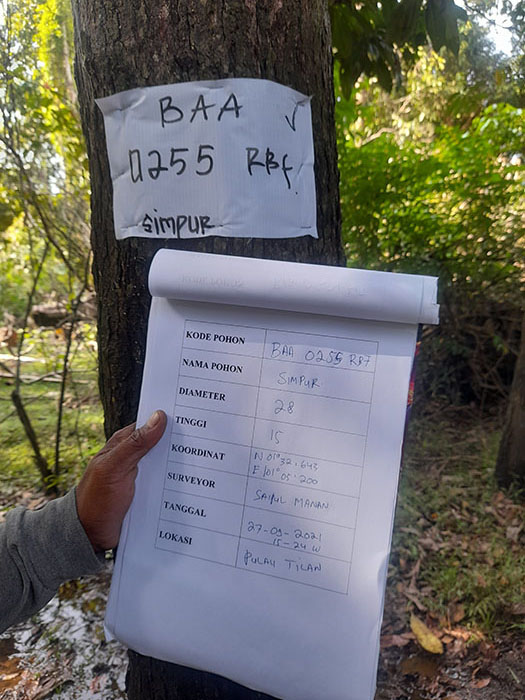 BAA
0255 RBf
SIMPUR
KODE POHON BAA 0255 RBf
NAMA POHON SIMPUR
DIAMETER 28
TINGGI 15
KOORDINAT N 01°32.643
E 101°05.200
SURVEYOR SAIFUL MANAN
TANGGAL 27-09-2021
15-24 W
LOKASI PULAU TILAN